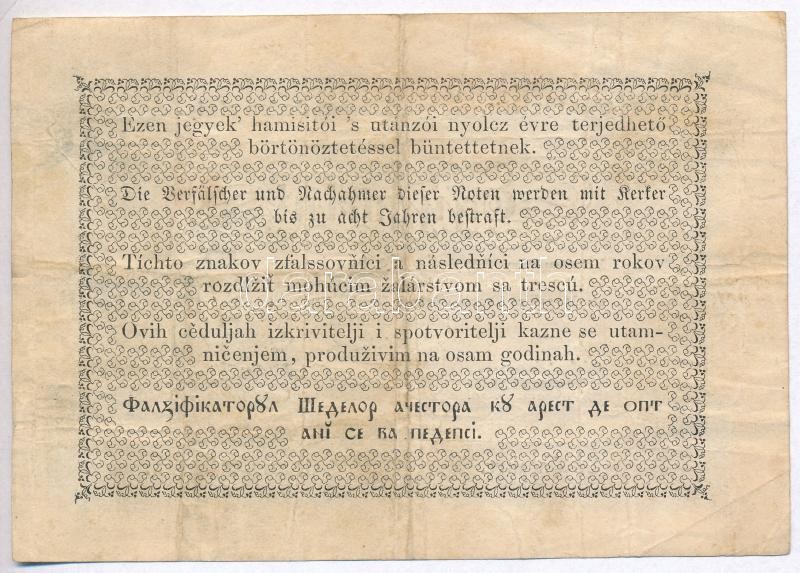 Ezen jegyek' hamisitói 's utánzói nyolcz évre terjedhető
börtönöztetéssel büntettetnek.
Die Verfälscher und Nachahmer dieser Noten werden mit Kerker
bis zu acht Jahren bestraft.
Tíchto znakov zfalssovňíci a následňíci na osem rokov
rozdlžiť mohúcim žalárstvom sa trescú.
Ovih cèduljah izkrivitelji i spotvoritelji kazne se utam-
ničenjem, produživim na osam godinah.
Фалꙃіфікаторꙋл Шеделор ачестора кꙋ арест де опт
анї се ва педепсі.
darabanth